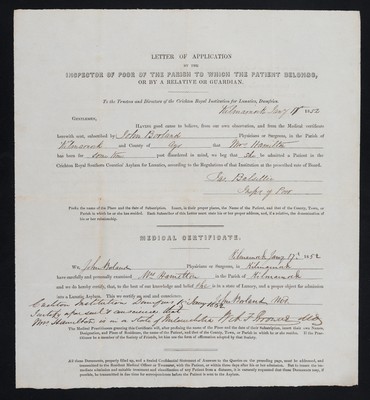 LETTER OF APPLICATION
BY THE
INSPECTOR OF POOR OF THE PARISH TO WHICH THE PATIENT BELONGS,
OR BY A RELATIVE OR GUARDIAN.
To the Trustees and Directors of the Crichton Royal Institution for Lunatics, Dumfries.
Kilmarnock Jany 17 1852
GENTLEMEN,
HAVING good cause to believe, from our own observation, and from the Medical certificate
herewith sent, subscribed by John Borland Physicians or Surgeons, in the Parish of
Kilmarnock and County of Ayr that Mrs Hamilton
has been for some time past disordered in mind, we beg that She be admitted a Patient in the
Crichton Royal Southern Counties' Asylum for Lunatics, according to the Regulations of that Institution at the prescribed rate of Board.
Inspr of Poor
Prefix the name of the Place and the date of Subscription. Insert, in their proper places, the Name of the Patient, and that of the County, Town, or
Parish in which he or she has resided. Each Subscriber of this Letter must state his or her proper address, and, if a relative, the denomination of
his or her relationship.
MEDICAL CERTIFICATE.
Kilmarnock Jany 17 1852
We, John Borland Physicians or Surgeons, in Kilmarnock
have carefully and personally examined Mrs Hamilton in the Parish of Kilmarnock
and we do hereby certify, that, to the best of our knowledge and belief She is in a state of Lunacy, and a proper object for admission
into a Lunatic Asylum. This we certify on soul and conscience.
John Borland MD.
Crichton Institution Dumfries Jany 1852
I certify upon soul & conscience that
Mrs Hamilton is in a state of Melancholia W. A. F. Browne MD
The Medical Practitioners granting this Certificate will, after prefixing the name of the Place and the date of their Subscription, insert their own Names,
Designation, and Place of Residence, the name of the Patient, and that of the County, Town, or Parish in which he or she resides. If the Practitioner
be a member of the Society of Friends, he may use the form of affirmation adopted by that Society.
All these Documents, properly filled up, and a detailed Confidential Statement of Answers to the Queries on the preceding page, must be addressed, and
transmitted to the Resident Medical Officer or Treasurer, with the Patient, or within three days after his or her admission. But to insure the immediate
admission and suitable treatment and classification of any Patient from a distance, it is earnestly requested that these Documents may, if
possible, be transmitted in due time for arrangements before the Patient is sent to the Asylum.